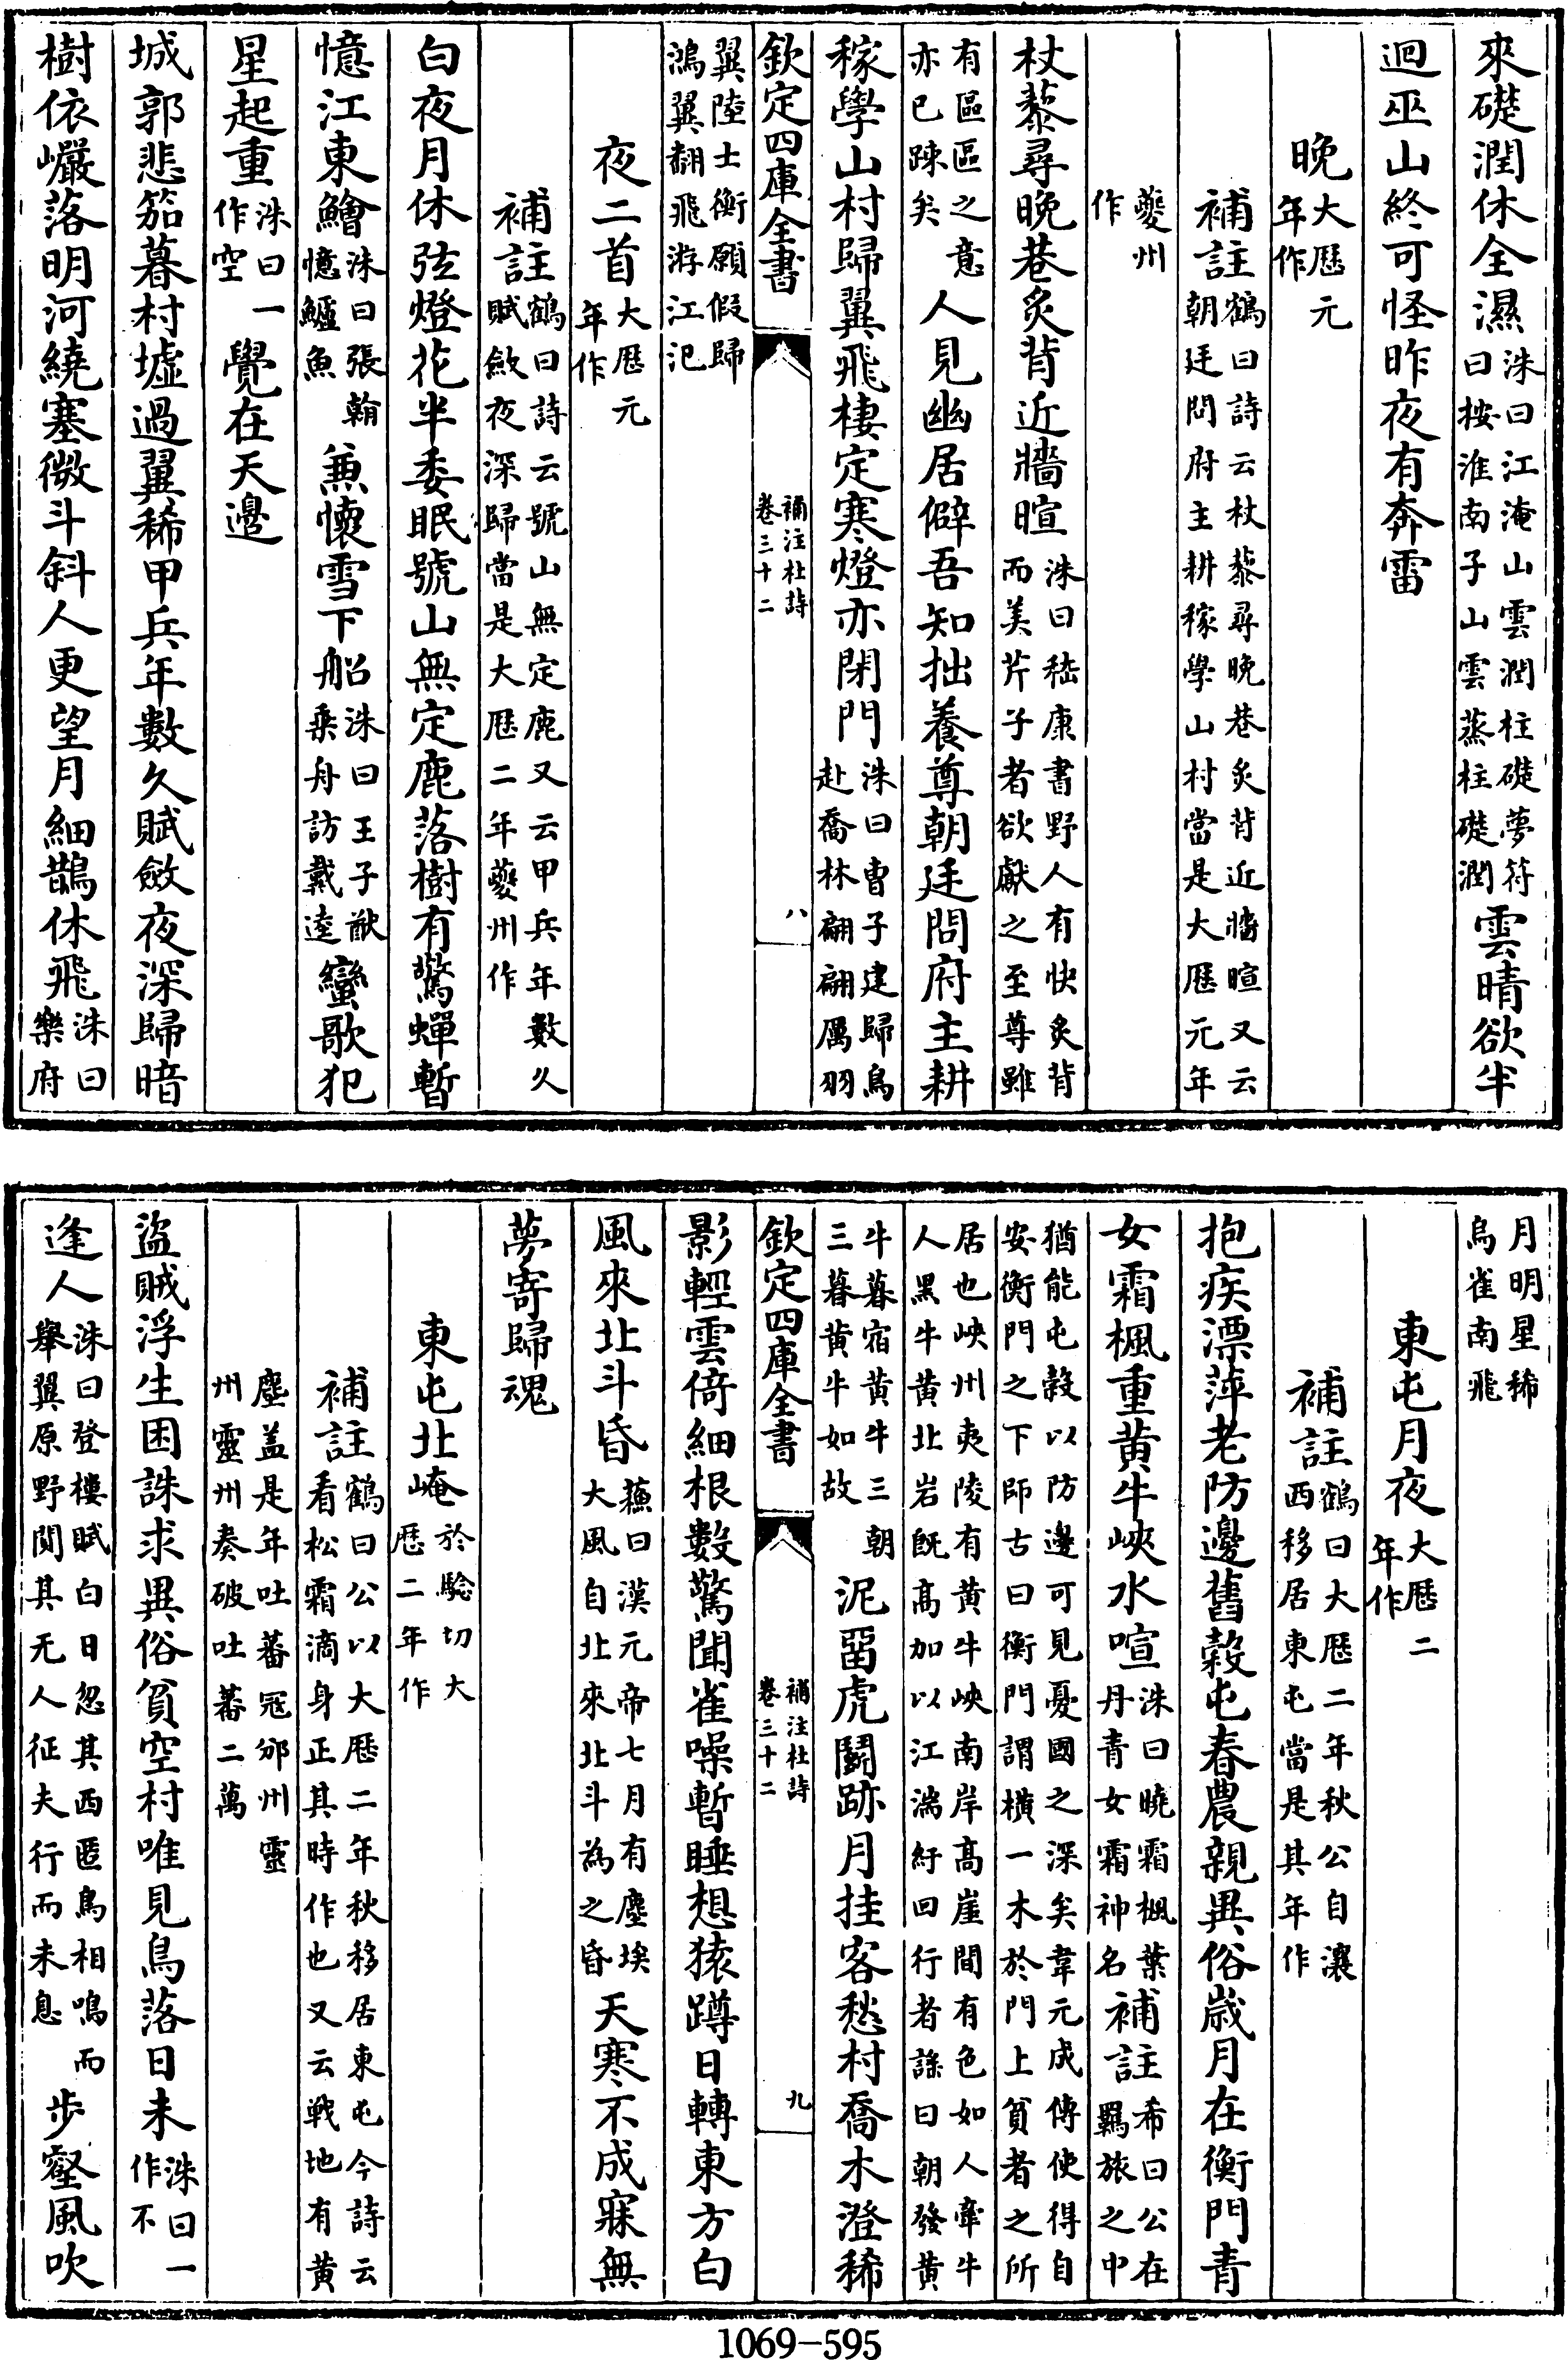 來礎潤休全濕洙曰江淹山雲潤柱礎夢符曰按淮南子山雲蒸柱礎潤雲晴欲半
迴巫山終可怪昨夜有奔雷
晚大厯元年作
補註鶴曰詩云杖藜尋晚巷炙背近牆暄又云朝廷問府主耕稼學山村當是大厯元年
夔州作
杖藜尋晚巷炙背近牆暄洙曰嵇康書野人有快炙背而美芹子者欲獻之至尊雖
有區區之意亦已踈矣人見幽居僻吾知拙養尊朝廷問府主耕
稼學山村歸翼飛棲定寒燈亦閉門洙曰曹子建歸鳥赴喬林翩翩厲羽
欽定四庫全書 補注杜詩卷三十二 八
翼陸士衡願假歸鴻翼翻飛游江汜
夜二首大厯元年作
補註鶴曰詩云號山無定鹿又云甲兵年數久賦斂夜深歸當是大厯二年夔州作
白夜月休弦燈花半委眠號山無定鹿落樹有驚蟬暫
憶江東鱠洙曰張翰憶鱸魚兼懷雪下船洙曰王子猷乘舟訪戴逵蠻歌犯
星起重洙曰一作空覺在天邊
城郭悲笳暮村墟過翼稀甲兵年數久賦斂夜深歸暗
樹依巖落明河繞塞微斗斜人更望月細鵲休飛洙曰樂府
月明星稀烏雀南飛
東屯月夜大厯二年作
補註鶴曰大厯二年秋公自瀼西移居東屯當是其年作
抱疾漂萍老防邊舊穀屯春農親異俗歲月在衡門青
女霜楓重黄牛峽水喧洙曰曉霜楓葉丹青女霜神名補註希曰公在羈旅之中
猶能屯穀以防邊可見憂國之深矣韋元成傳使得自安衡門之下師古曰衡門謂横一木於門上貧者之所
居也峽州夷陵有黄牛峽南岸高崖間有色如人牽牛人黑牛黄北岩既高加以江湍紆回行者謡曰朝發黄
牛暮宿黄牛三朝三暮黄牛如故泥留虎鬭跡月挂客愁村喬木澄稀
欽定四庫全書 補注杜詩卷三十二 九
影輕雲倚細根數驚聞雀噪暫睡想猿蹲日轉東方白
風來北斗昏蘓曰漢元帝七月有塵埃大風自北來北斗為之昏天寒不成寐無
夢寄歸魂
東屯北崦於騐切大厯二年作
補註鶴曰公以大厯二年秋移居東屯今詩云看松霜滴身正其時作也又云戰地有黄
塵盖是年吐蕃冦邠州靈州靈州奏破吐蕃二萬
盜賊浮生困誅求異俗貧空村唯見鳥落日未洙曰一作不
逢人洙曰登樓賦白日忽其西匿鳥相鳴而舉翼原野闃其无人征夫行而未息步壑風吹
1069-595